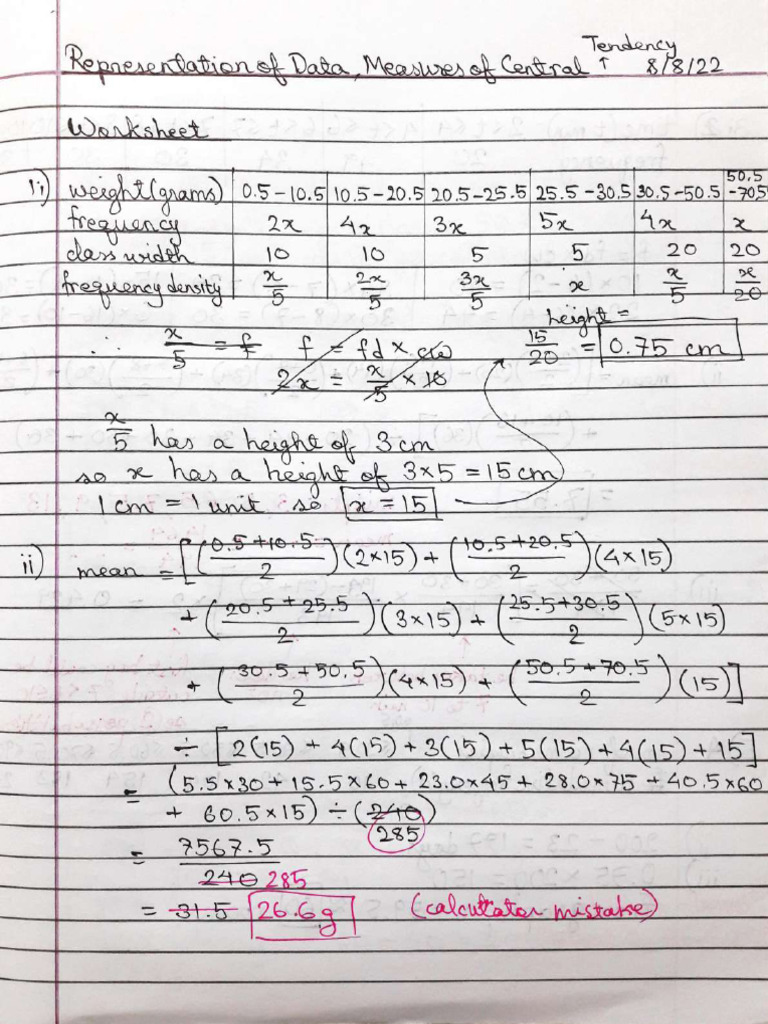 Tendency
Representation of Data, Measures of Central ↑ 8/8/22
Worksheet
1i) weight(grams) | 0.5-10.5 | 10.5-20.5 | 20.5-25.5 | 25.5-30.5 | 30.5-50.5 | 50.5-70.5
frequency | 2x | 4x | 3x | 5x | 4x | x
class width | 10 | 10 | 5 | 5 | 20 | 20
frequency density | x/5 | 2x/5 | 3x/5 | x | x/5 | x/20
∴ x/5 = f f = fd × cw height = 15/20 = 0.75 cm
2x = x/5 × 10
x/5 has a height of 3 cm
so x has a height of 3×5 = 15 cm
1 cm = 1 unit so x = 15
ii) mean = [((0.5+10.5)/2)(2×15) + ((10.5+20.5)/2)(4×15)
+ ((20.5+25.5)/2)(3×15) + ((25.5+30.5)/2)(5×15)
+ ((30.5+50.5)/2)(4×15) + ((50.5+70.5)/2)(15)]
÷ [2(15) + 4(15) + 3(15) + 5(15) + 4(15) + 15]
= (5.5×30 + 15.5×60 + 23.0×45 + 28.0×75 + 40.5×60
+ 60.5×15) ÷ (240)
285
= 7567.5/240 285
= 31.5 26.6g (calculator mistake)